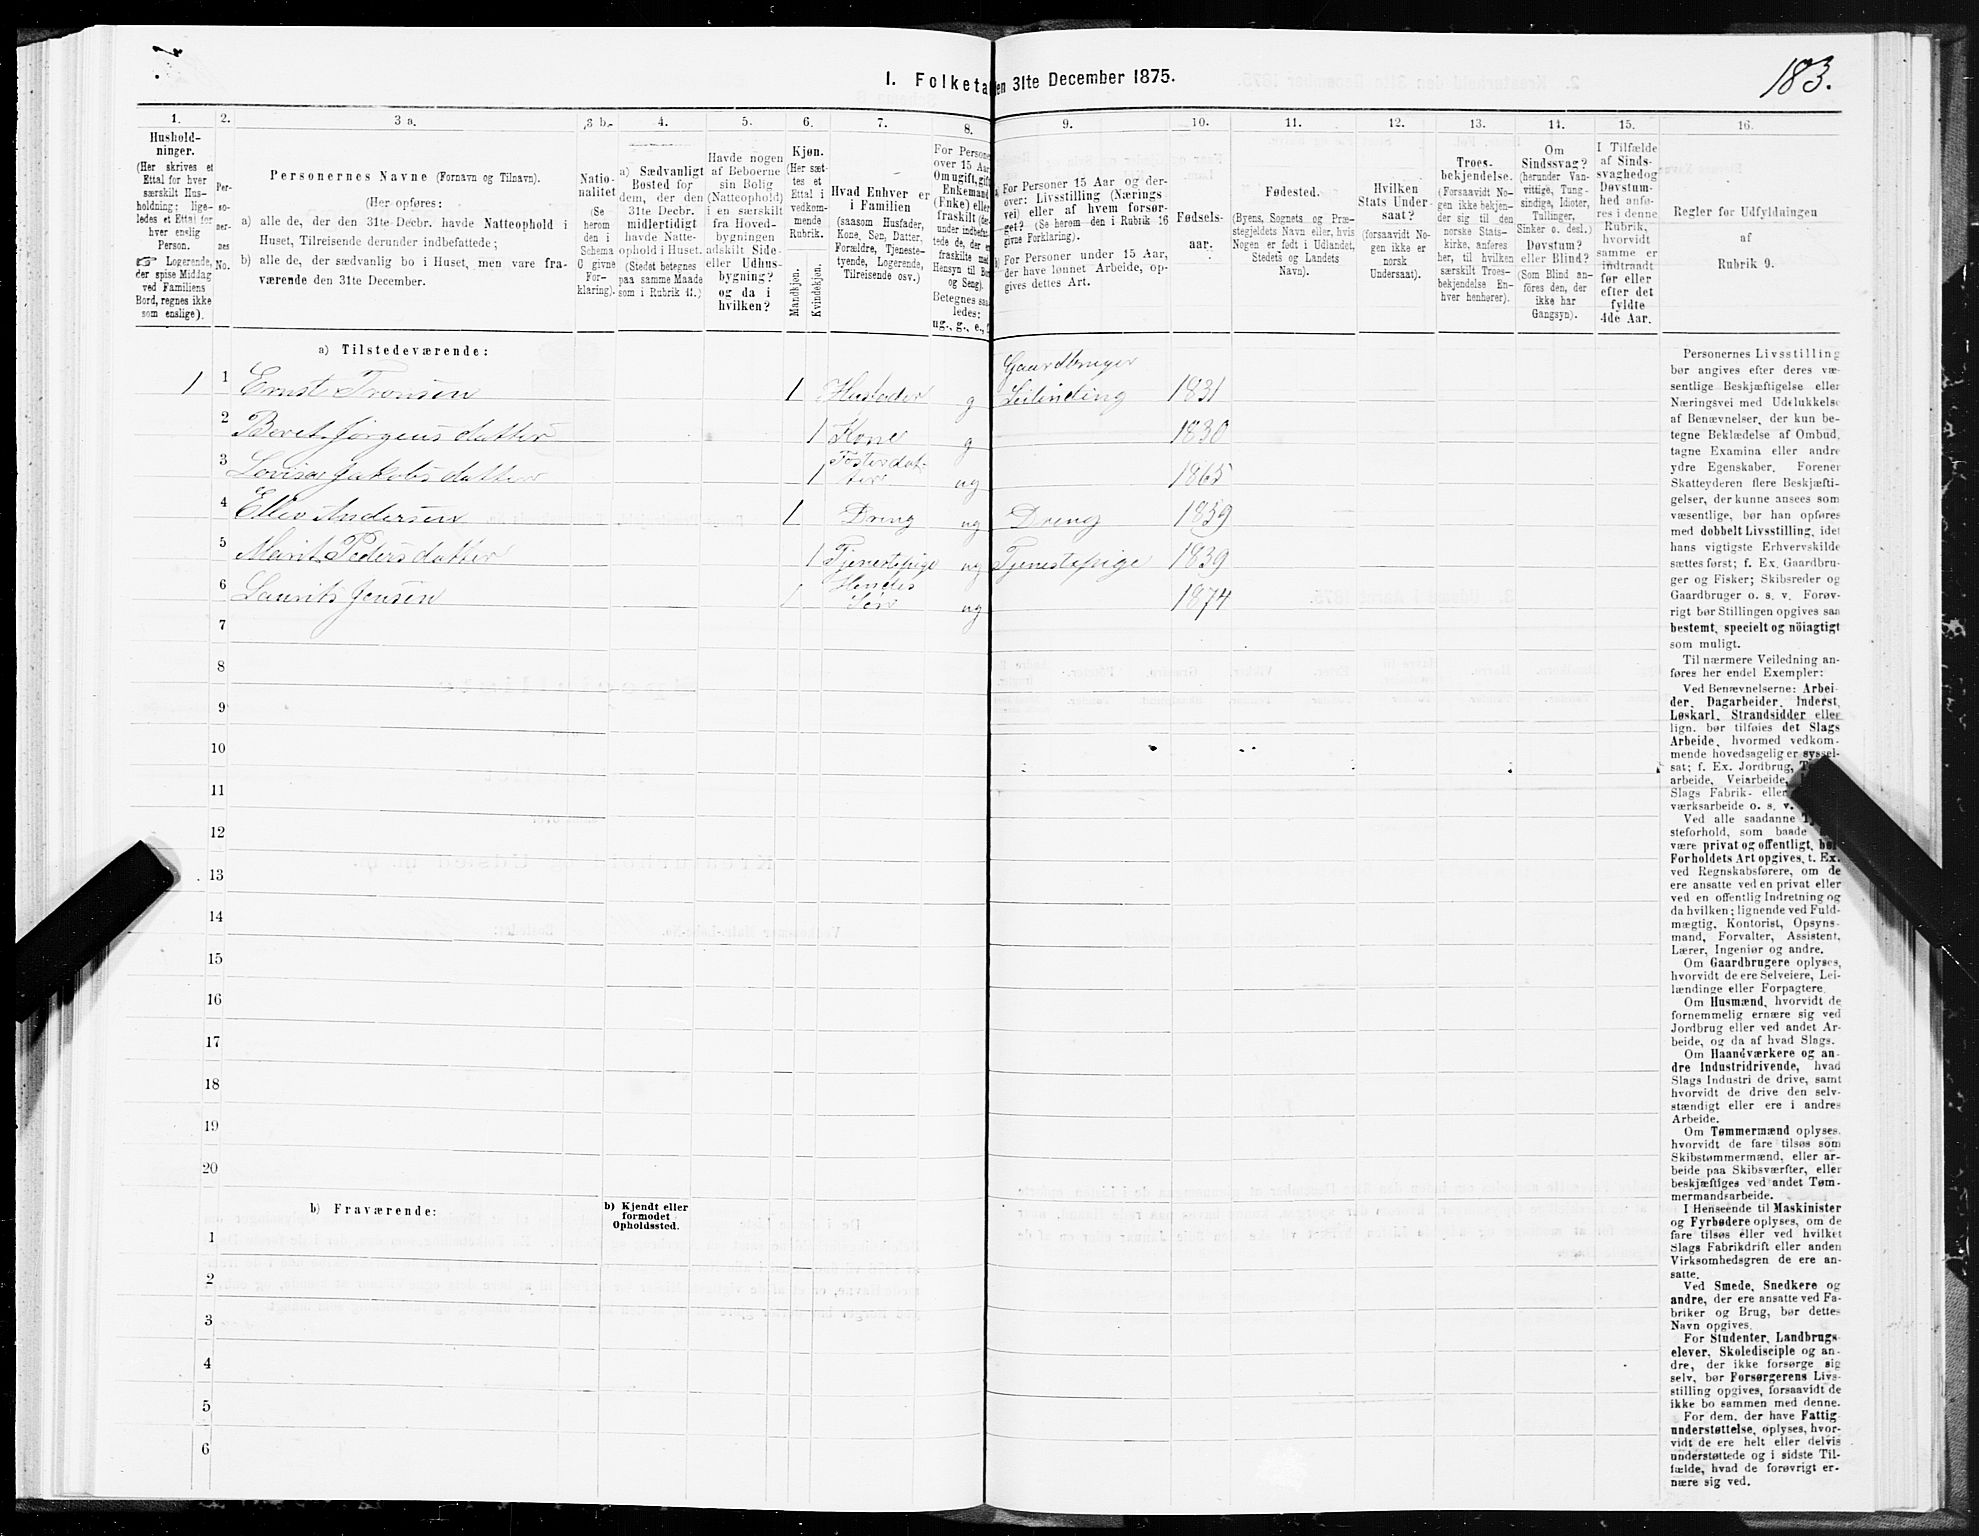 183.
I. Folketa en 31te December 1875.
1. 2. 3 a. 3 b. 4. 5. 6. 7. 8. 9. 10. 11. 12. 13. 14. 15. 16.
Hushold-
ninger.
(Her skrives et
Ettal for hver
særskilt Hus-
holdning; lige-
ledes et Ettal for
hver enslig
Person.
☞ Logerende,
der spise Middag
ved Familiens
Bord, regnes ikke
som enslige).
Per-
so-
ner-
nes
No.
Personernes Navne (Fornavn og Tilnavn).
(Her opføres:
a) alle de, der den 31te Decbr. havde Natteophold i
Huset, Tilreisende derunder indbefattede;
b) alle de, der sædvanlig bo i Huset, men vare fra-
værende den 31te December.
Natio-
nalitet
(Se
herom
den i
Schema
C givne
For-
klaring).
a) Sædvanligt
Bosted for
dem, der den
31te Decbr.
midlertidigt
havde Natte-
ophold i Huset.
(Stedet betegnes
paa samme Maade
som i Rubrik 11.)
Havde nogen
af Beboerne
sin Bolig
(Natteophold)
i en særskilt
fra Hoved-
bygningen
adskilt Side-
eller Udhus-
bygning?
og da i
hvilken?
Kjøn.
(Her sæt-
tes et
Ettal i
vedkom-
mende
Rubrik.
Mandkjøn.
Kvindekjøn.
Hvad Enhver er
i Familien
(saasom Husfader,
Kone, Søn, Datter,
Forældre, Tjeneste-
tyende, Logerende,
Tilreisende osv.)
For Persone
over 15 Aar
Om ugift, gift
Enkemand
(Enke) eller
fraskilt (der-
under indbefat-
tede de, der e
fraskilte med
Hensyn til Bo
og Seng).
Betegnes saa
ledes:
ug., g., e.,
a) For Personer 15 Aar og der-
over: Livsstilling (Nærings
vei) eller af hvem forsør-
get? (Se herom den i Rubrik 16
givne Forklaring).
b) For Personer under 15 Aar,
der have lønnet Arbeide, op-
gives dettes Art.
Fødsels-
aar.
Fødested.
(Byens, Sognets og Præ-
stegjeldets Navn eller, hvis
Nogen er født i Udlandet,
Stedets og Landets
Navn).
Hvilken
Stats Under-
saat?
(forsaavidt No-
gen ikke er
norsk
Undersaat).
Troes-
bekjendelse.
(Forsaavidt No-
gen ikke bekjen-
der sig til den
norske Stats-
kirke, anføres
her, til hvilken
særskilt Troes-
bekjendelse En-
hver henhører).
Om
Sindssvag?
(herunder Van-
vittige, Tung-
sindige, Idioter,
Tullinger,
Sinker o. desl.)
Døvstum?
eller Blind?
(Som Blind an-
føres den, der
ikke har
Gangsyn).
I Tilfælde
af Sinds-
svaghed og
Døvstum-
hed anfø-
res i denne
Rubrik,
hvorvidt
samme er
indtraadt
før eller
efter det
fyldte
4de Aar.
Regler for Udfyldningen
af
Rubrik 9.
a) Tilstedeværende:
Gaardbruger
1 1 Ernst Tronsen 1 Husfader g Leilending 1831
2 Beret Jørgensdatter 1 Kone g 1830
3 Lovisa Jakobsdatter 1 Fostersdat-
ter ug 1865
4 Ellev Andersen 1 Dreng ug Dreng 1859
5 Marit Pedersdatter 1 Tjenestepige ug Tjenestepige 1839
6 Laurits Jensen 1 Hendes
Søn ug 1874
7
8
9
10
11
12
13
14
15
16
17
18
19
20
b) Fraværende:
b) Kjendt eller
formodet
Opholdssted.
1
2
3
4
5
6
Personernes Livsstilling
bør angives efter deres væ-
sentlige Beskjæftigelse eller
Næringsvei med Udelukkelse
af Benævnelser, der kun be-
tegne Beklædelse af Ombud,
tagne Examina eller andre
ydre Egenskaber. Forener
Skatteyderen flere Beskjæfti-
gelser, der kunne ansees som
væsentlige, bør han opføres
med dobbelt Livsstilling, idet
hans vigtigste Erhvervskilde
sættes først; f. Ex. Gaardbru-
ger og Fisker; Skibsreder og
Gaardbruger o. s. v. Forøv-
rigt bør Stillingen opgives saa
bestemt, specielt og nöiagtigt
som muligt.
Til nærmere Veiledning an-
føres her endel Exempler:
Ved Benævnelserne: Arbei-
der, Dagarbeider, Inderst,
Løskarl, Strandsidder eller
lign. bør tilføies det Slags
Arbeide, hvormed vedkom-
mende hovedsagelig er syssel-
sat; f. Ex. Jordbrug,
arbeide, Veiarbeide,
Slags Fabrik- eller
værksarbeide o. s. v.
Ved alle saadanne
steforhold, som baade
være privat og offentligt, bør
Forholdets Art opgives, t. Ex.
ved Regnskabsførere, om de
ere ansatte ved en privat eller
ved en offentlig Indretning og
da hvilken; lignende ved Fuld-
mægtig, Kontorist, Opsyns-
mand, Forvalter, Assistent,
Lærer, Ingeniør og andre.
Om Gaardbrugere oplyses,
hvorvidt de ere Selveiere, Lei-
lændinge eller Forpagtere.
Om Husmænd, hvorvidt de
fornemmelig ernære sig ved
Jordbrug eller ved andet Ar-
beide, og da af hvad Slags.
Om Haandværkere og an-
dre Industridrivende, hvad
Slags Industri de drive, samt
hvorvidt de drive den selv-
stændigt eller ere i andres
Arbeide.
Om Tømmermænd oplyses,
hvorvidt de fare tilsøs som
Skibstømmermænd, eller ar-
beide paa Skibsværfter, eller
beskjæftiges ved andet Tøm-
mermandsarbeide.
I Henseende til Maskinister
og Fyrbødere oplyses, om de
fare tilsøs eller ved hvilket
Slags Fabrikdrift eller anden
Virksomhedsgren de ere an-
satte.
Ved Smede, Snedkere og
andre, der ere ansatte ved Fa-
briker og Brug, bør dettes
Navn opgives.
For Studenter, Landbrugs-
elever, Skoledisciple og an-
dre, der ikke forsørge sig
selv, bør Forsørgerens Livs-
stilling opgives, forsaavidt de
ikke bo sammen med denne.
For dem, der have Fattig-
understøttelse, oplyses, hvor-
vidt de ere helt eller delvis
understøttede og i sidste Til-
fælde, hvad de forøvrigt er-
nære sig ved.